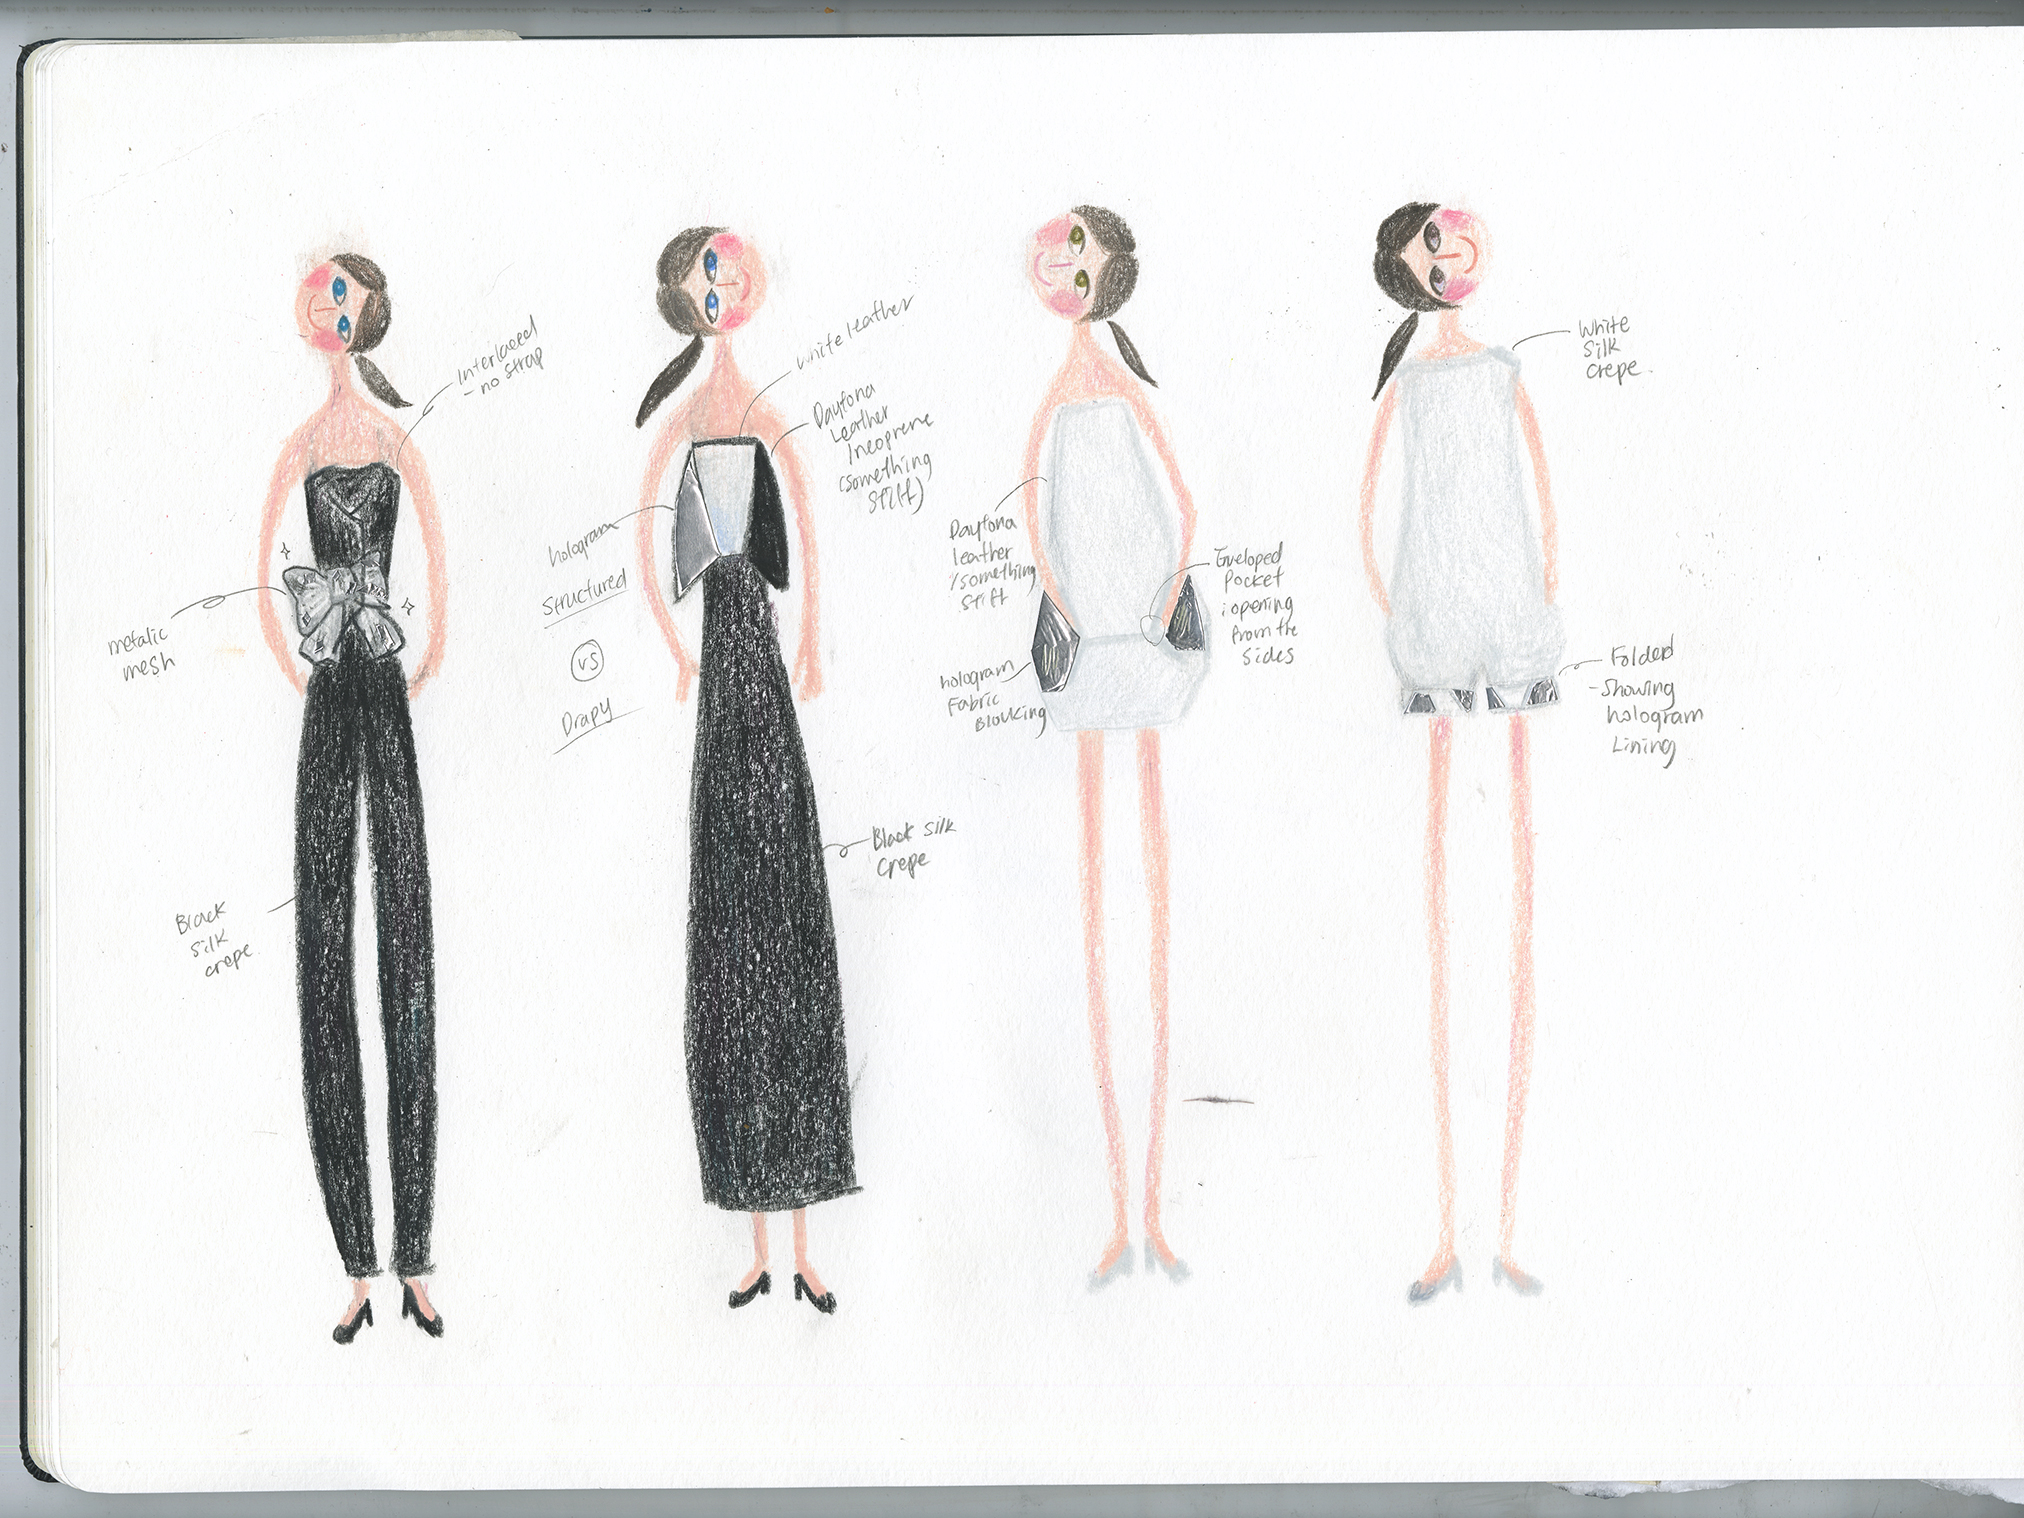 Interlaced
- no strap
metalic
mesh
Black
silk
crepe
white leather
Daytona
Leather
/neoprene
(something
stiff)
hologram
Structured
vs
Drapy
Black silk
crepe
Daytona
leather
/something
stiff
hologram
Fabric
Blocking
Enveloped
Pocket
: opening
from the
sides
White
silk
crepe.
Folded
- showing
hologram
Lining